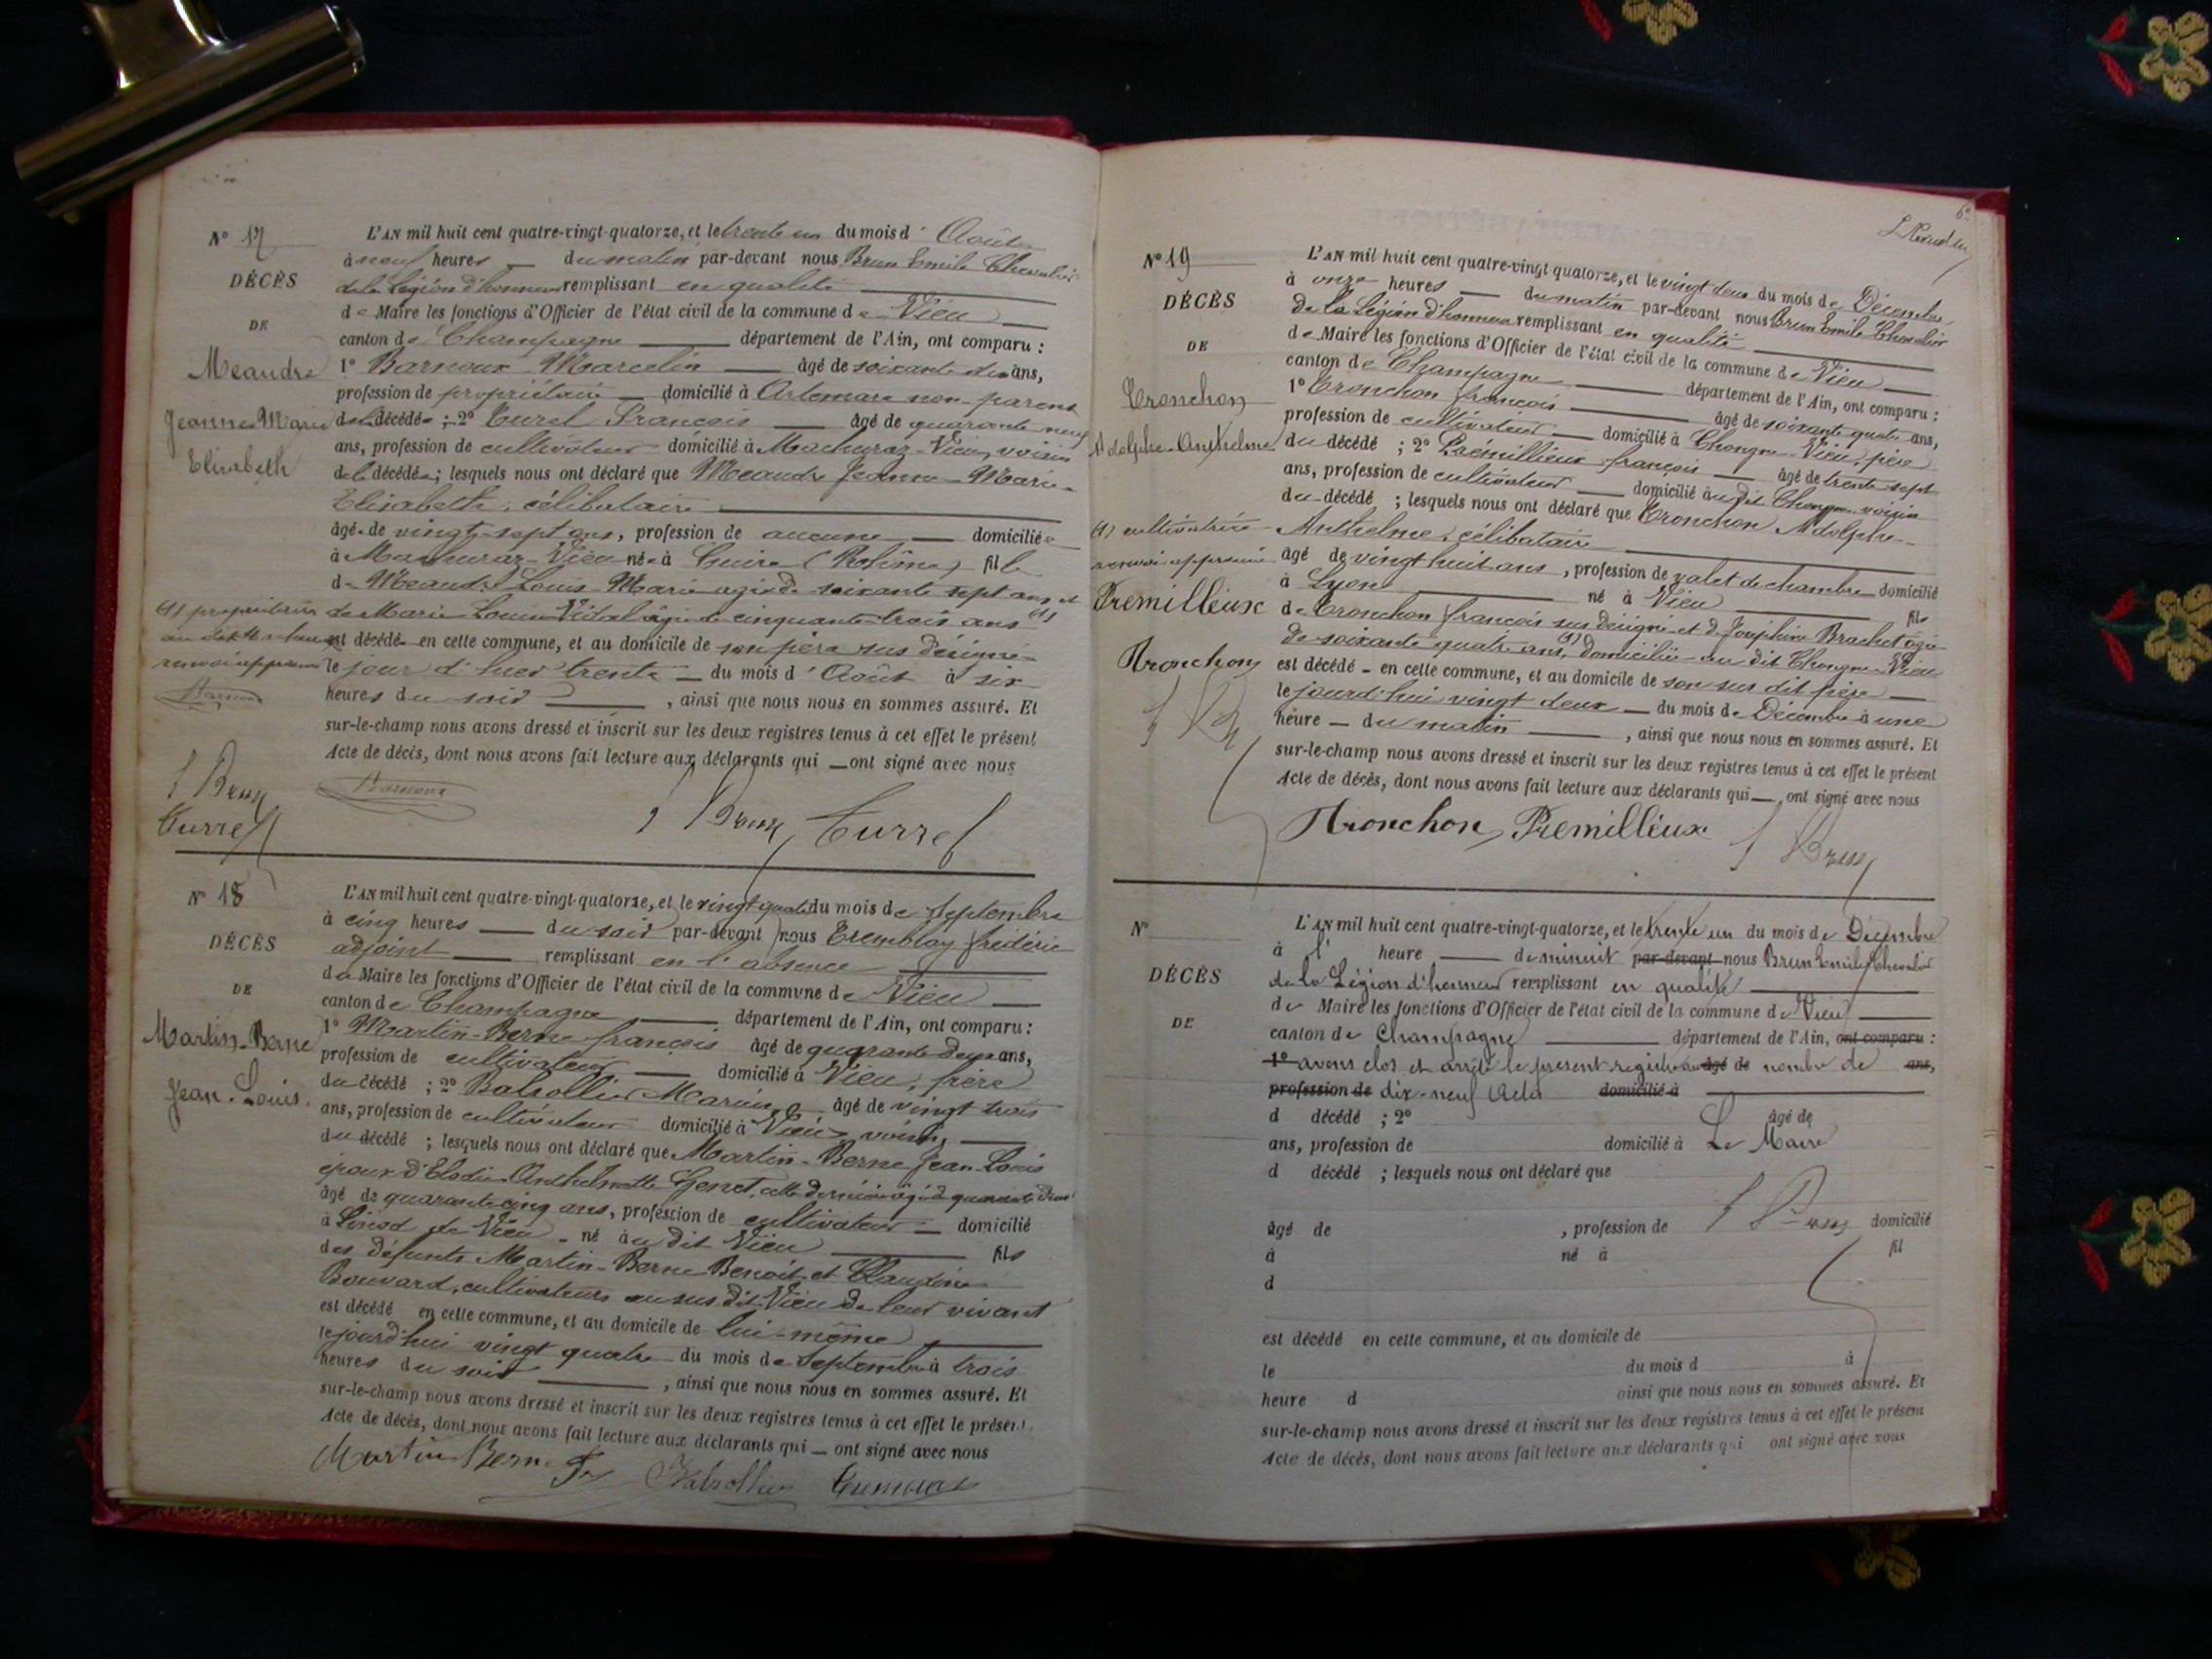 N° 17
DÉCÈS
DE
Meandre
Jeanne Marie
Elisabeth
L'AN mil huit cent quatre-vingt-quatorze, et le trente un du mois d'Août
à neuf heures du matin par-devant nous Brun Emile Chevalier
de la Légion d'honneur remplissant en qualité
de Maire les fonctions d'Officier de l'état civil de la commune de Vieu
canton de Champagne département de l'Ain, ont comparu :
1° Barnoux Marcelin âgé de soixante deux ans,
profession de propriétaire domicilié à Artemare non parent
de la décédée ; 2° Turel François âgé de quarante neuf
ans, profession de cultivateur domicilié à Machuraz-Vieu, voisin
de la décédée ; lesquels nous ont déclaré que Meandre Jeanne-Marie-
Elisabeth, célibataire
âgée de vingt-sept ans, profession de aucune domiciliée
à Machuraz-Vieu née à Cuire (Rhône) fille
de Meandre Louis Marie agé de soixante sept ans et
de Marie Louise Vidal âgée de cinquante-trois ans (1)
est décédée en cette commune, et au domicile de son père sus désigné
le jour d'hier trente du mois d'Août à six
heures du soir , ainsi que nous nous en sommes assuré. Et
sur-le-champ nous avons dressé et inscrit sur les deux registres tenus à cet effet le présent
Acte de décès, dont nous avons fait lecture aux déclarants qui ont signé avec nous
(1) propriétaires
renvoi approuvé
Barnoux
E Brun
Turrel
Barnoux
E Brun Turrel
N° 18
DÉCÈS
DE
Martin-Berne
Jean-Louis.
L'AN mil huit cent quatre-vingt-quatorze, et le vingt quatre du mois de Septembre
à cinq heures du soir par-devant nous Tremblay frédéric
adjoint remplissant en l'absence
du Maire les fonctions d'Officier de l'état civil de la commune de Vieu
canton de Champagne département de l'Ain, ont comparu :
1° Martin-Berne françois âgé de quarante deux ans,
profession de cultivateur domicilié à Vieu, frère
du décédé ; 2° Balsollier Marius âgé de vingt trois
ans, profession de cultivateur domicilié à Vieu, voisin
du décédé ; lesquels nous ont déclaré que Martin-Berne Jean-Louis
époux d'Elodie Anthelmette Genet, cette dernière âgée de quarante deux
âgé de quarante cinq ans, profession de cultivateur domicilié
à Linod de Vieu né au dit Vieu fils
des défunts Martin-Berne Benoit et Claudine
Bouvard, cultivateurs au sus dit Vieu de leur vivant
est décédé en cette commune, et au domicile de lui-même
le jourd'hui vingt quatre du mois de Septembre à trois
heures du soir , ainsi que nous nous en sommes assuré. Et
sur-le-champ nous avons dressé et inscrit sur les deux registres tenus à cet effet le présent
Acte de décès, dont nous avons fait lecture aux déclarants qui ont signé avec nous
Martin Berne Fs Balsollier
N° 19
DÉCÈS
DE
Tronchon
Adolphe-Anthelme
L'AN mil huit cent quatre-vingt-quatorze, et le vingt deux du mois de Décembre
à onze heures du matin par-devant nous Brun Emile Chevalier
de la Légion d'honneur remplissant en qualité
de Maire les fonctions d'Officier de l'état civil de la commune de Vieu
canton de Champagne département de l'Ain, ont comparu :
1° Tronchon françois âgé de soixante quatre ans,
profession de cultivateur domicilié à Chongne-Vieu, père
du décédé ; 2° Prémillieux françois âgé de trente sept
ans, profession de cultivateur domicilié au dit Chongne voisin
du décédé ; lesquels nous ont déclaré que Tronchon Adolphe-
Anthelme, célibataire
âgé de vingt huit ans, profession de valet de chambre domicilié
à Lyon né à Vieu fils
de Tronchon françois sus désigné et de Joséphine Brachet agée
de soixante quatre ans, (1) domiciliée au dit Chongne-Vieu
est décédé en cette commune, et au domicile de son sus dit père
le jourd'hui vingt deux du mois de Décembre à une
heure du matin , ainsi que nous nous en sommes assuré. Et
sur-le-champ nous avons dressé et inscrit sur les deux registres tenus à cet effet le présent
Acte de décès, dont nous avons fait lecture aux déclarants qui ont signé avec nous
(1) cultivatrice
renvoi approuvé
Premillieux
Tronchon
Tronchon Premillieux E Brun
N°
DÉCÈS
DE
L'AN mil huit cent quatre-vingt-quatorze, et le trente un du mois de Décembre
à l' heure de minuit par-devant nous Brun Emile Chevalier
de la Légion d'honneur remplissant en qualité
de Maire les fonctions d'Officier de l'état civil de la commune de Vieu
canton de Champagne département de l'Ain, ont comparu :
1° avons clos et arrêté le présent registre au âgé de nombre de ans,
profession de dix-neuf Actes domicilié à
d décédé ; 2° âgé de
ans, profession de domicilié à Le Maire
d décédé ; lesquels nous ont déclaré que
E Brun
âgé de , profession de domicilié
à né à fil
d
est décédé en cette commune, et au domicile de
le du mois d à
heure d ainsi que nous nous en sommes assuré. Et
sur-le-champ nous avons dressé et inscrit sur les deux registres tenus à cet effet le présent
Acte de décès, dont nous avons fait lecture aux déclarants qui ont signé avec nous